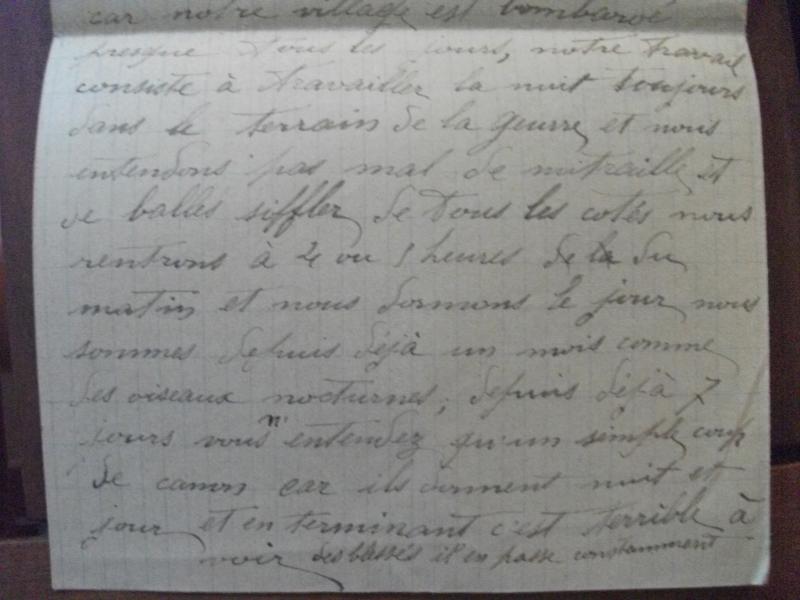 car notre village est bombardé
presque tous les jours, notre travail
consiste à travailler la nuit toujours
dans le terrain de la guerre, et nous
entendons pas mal de mitraille et
de balles siffler de tous les cotés nous
rentrons à 4 ou 5 heures de la du
matin et nous dormons le jour nous
sommes depuis déjà un mois comme
des oiseaux nocturnes, depuis déjà 7
jours vous n'entendez qu'un simple coup
de canon car ils donnent nuit et
jour et en terminant c'est terrible à
voir des blessés il en passe constamment